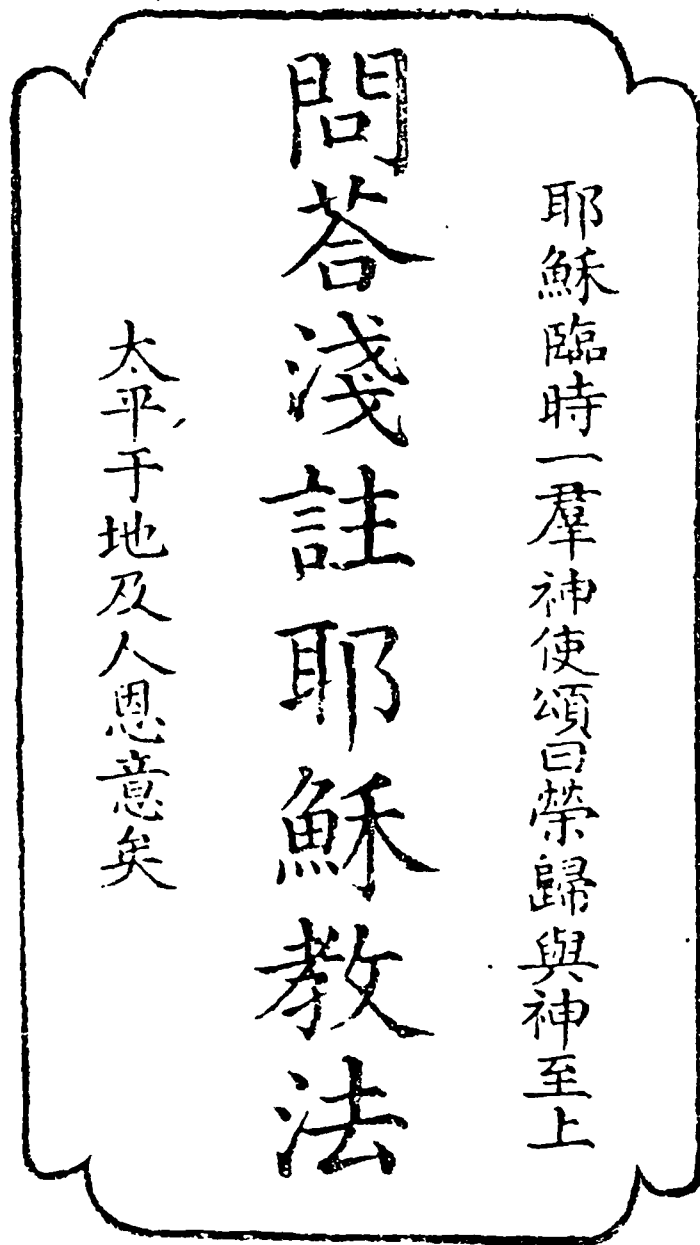 耶穌臨時一羣神使頌曰榮歸與神至上
問荅淺註耶穌教法
太平于地及人恩意矣